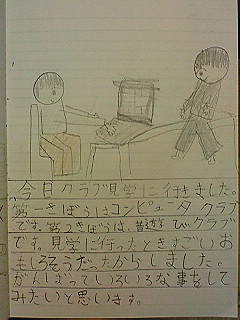 今日クラブ見学に行きました。
第一きぼうはコンピュータクラブ
です。第2きぼうは、昔遊びクラブ
です。見学に行ったときすごいお
もしろそうだったからしました。
がんばっていろいろな事をして
みたいと思います。